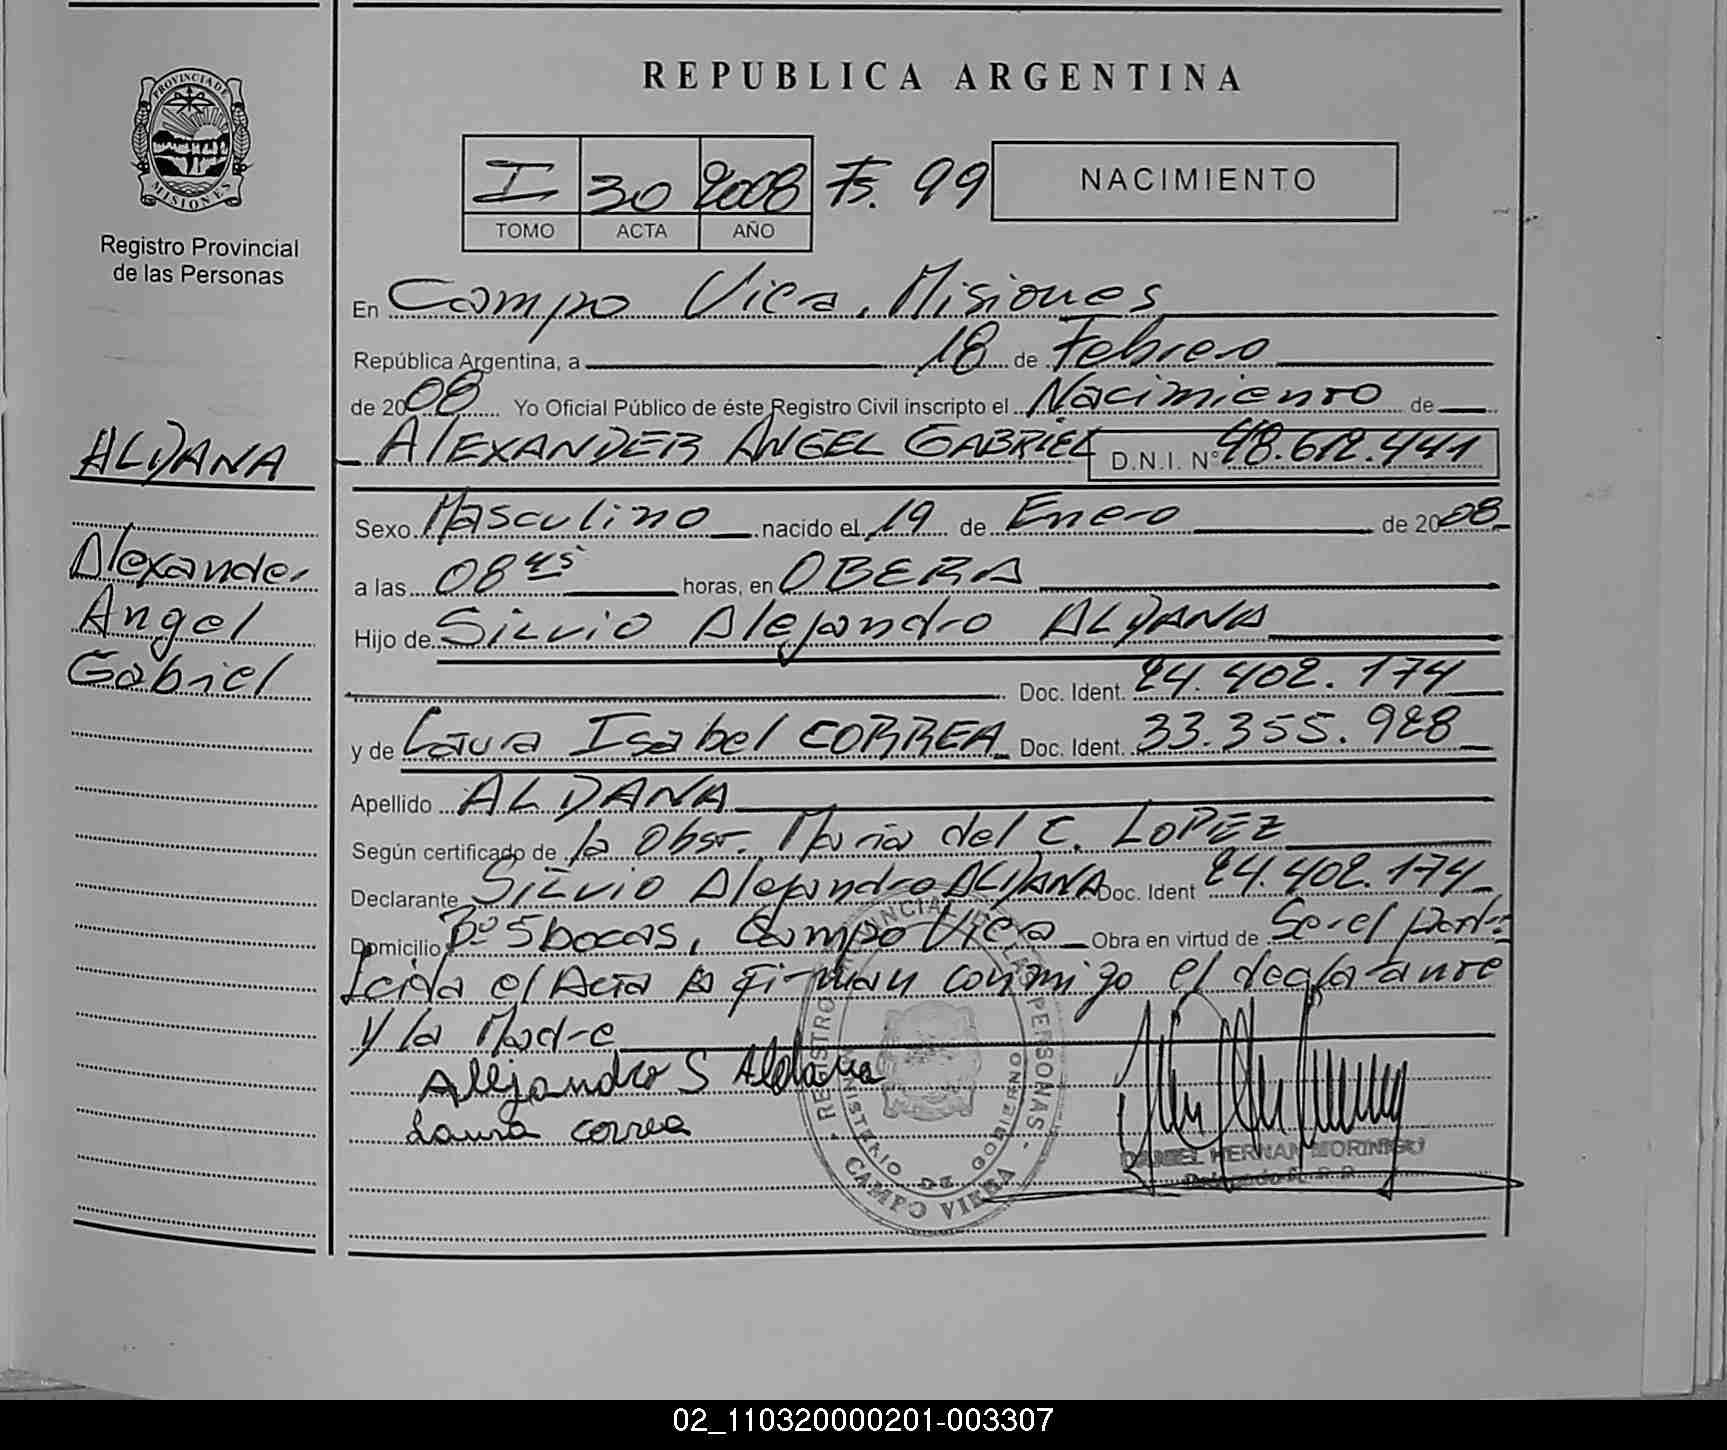 REPUBLICA ARGENTINA
PROVINCIA DE MISIONES
Registro Provincial
de las Personas
I 30 2008 Fs. 99
TOMO ACTA AÑO
NACIMIENTO
En Campo Viera, Misiones
República Argentina, a 18 de Febrero
de 2008 Yo Oficial Público de éste Registro Civil inscripto el Nacimiento de
ALEXANDER ANGEL GABRIEL D.N.I. Nº 48.612.441
Sexo Masculino nacido el 19 de Enero de 2008
a las 08 45 horas, en OBERA
Hijo de Silvio Alejandro ALDANA
Doc. Ident. 24.402.174
y de Laura Isabel CORREA Doc. Ident. 33.355.928
Apellido ALDANA
Según certificado de la Obst. Maria del C. LOPEZ
Declarante Silvio Alejandro ALDANA Doc. Ident 24.402.174
Domicilio Bº 5 bocas, Campo Viera Obra en virtud de Ser el padre
Leida el Acta la firman conmigo el declarante
y la Madre
Alejandro S Aldana
Laura correa
ALDANA
Alexander
Angel
Gabriel
REGISTRO PROVINCIAL DE LAS PERSONAS
MINISTERIO DE GOBIERNO
CAMPO VIERA
DANIEL HERNAN MORINIGO
02_110320000201-003307